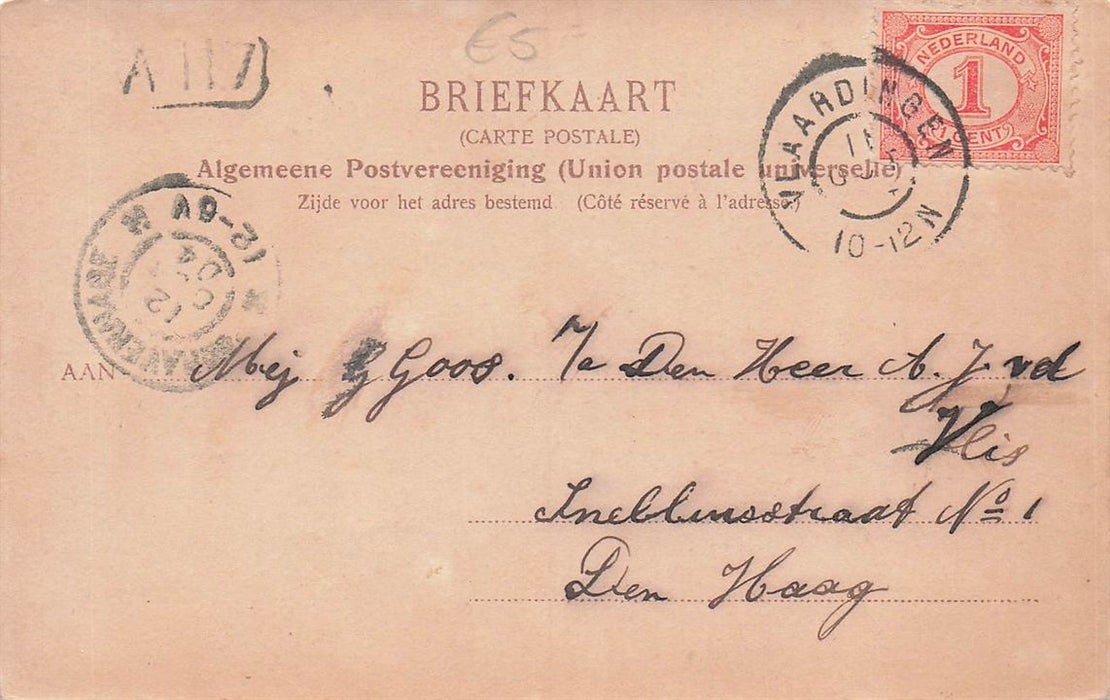 €5
BRIEFKAART
(CARTE POSTALE)
Algemeene Postvereeniging (Union postale universelle)
Zijde voor het adres bestemd. (Côté réservé à l'adresse.)
NEDERLAND
1
1 CENT
VLAARDINGEN
11
10-12N
12-6V
12
04
AAN Mej G Goos. Den Heer A. J. vd
Vlis
Sneblinsstraat No 1
Den Haag